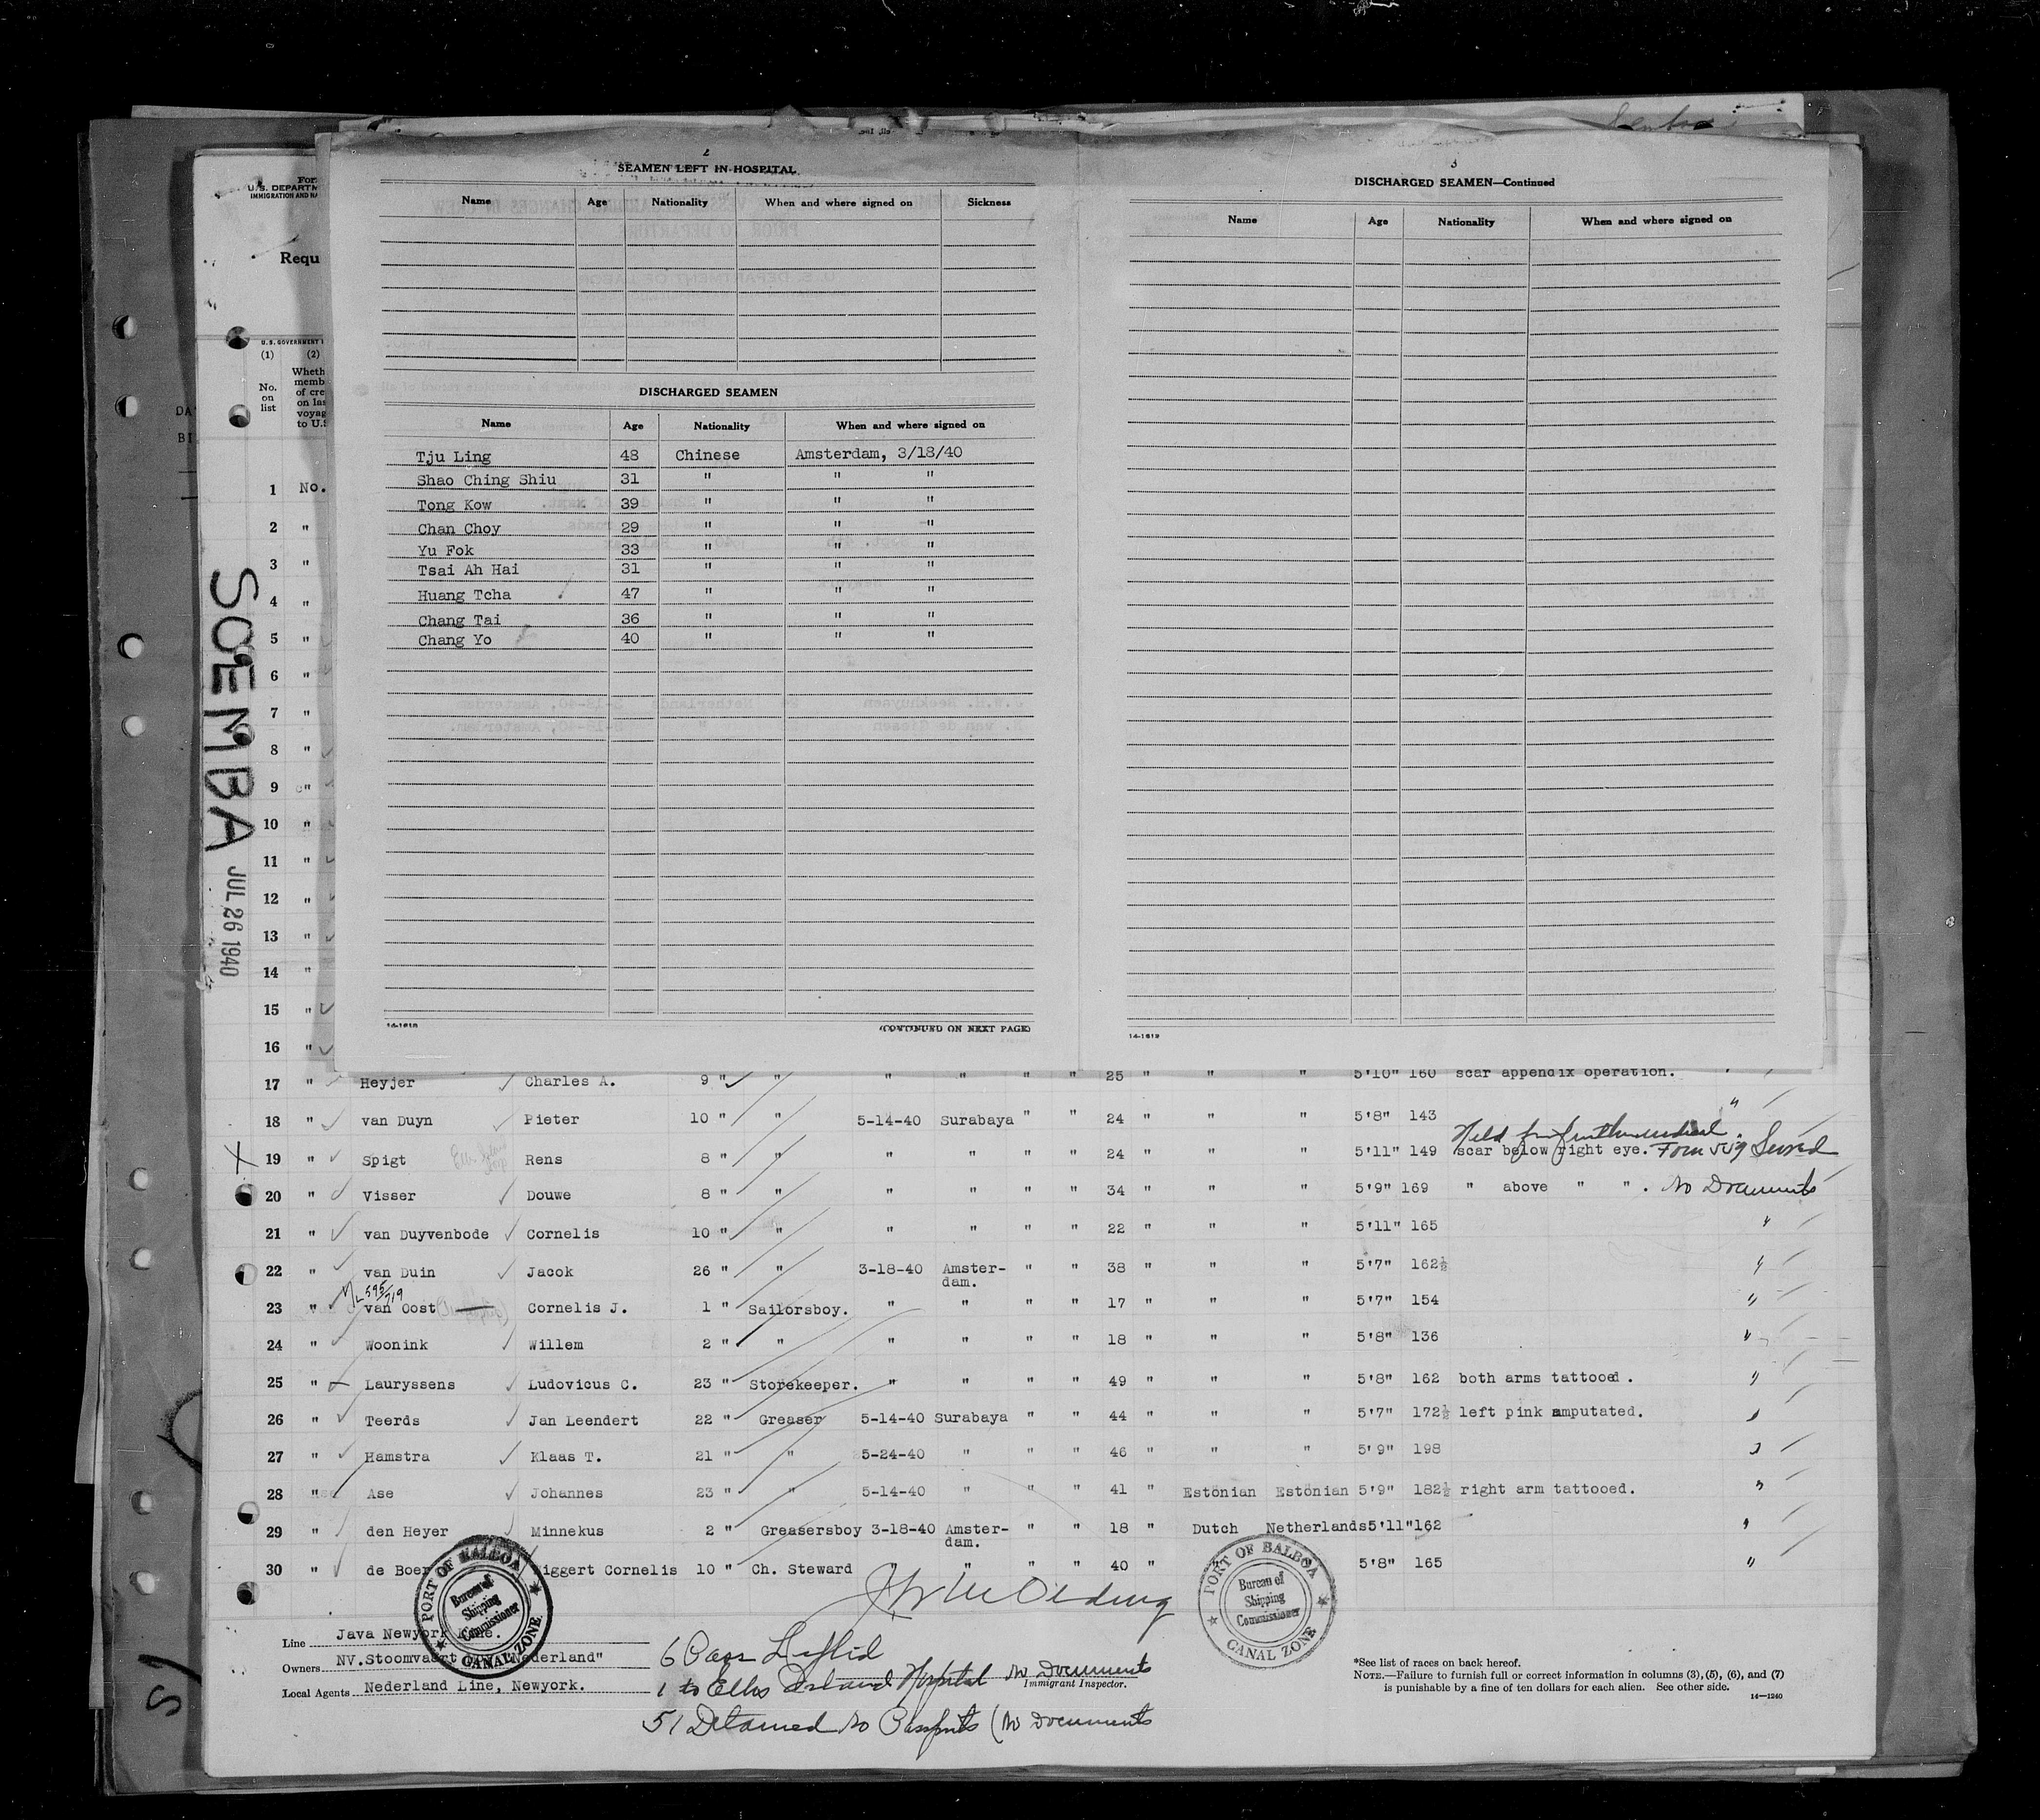 2
SEAMEN LEFT IN HOSPITAL
Name Age Nationality When and where signed on Sickness
DISCHARGED SEAMEN
Name Age Nationality When and where signed on
Tju Ling 48 Chinese Amsterdam, 3/18/40
Shao Ching Shiu 31 " " "
Tong Kow 39 " " "
Chan Choy 29 " " "
Yu Fok 33 " " "
Tsai Ah Hai 31 " " "
Huang Tcha 47 " " "
Chang Tai 36 " " "
Chang Yo 40 " " "
14-1618 (CONTINUED ON NEXT PAGE)
3
DISCHARGED SEAMEN—Continued
Name Age Nationality When and where signed on
14-1619
For
U.S. DEPARTM
IMMIGRATION AND NA
Requ
U.S. GOVERNMENT
(1) (2)
No. on list
Wheth
memb
of cre
on las
voyag
to U.S
DA
BI
SOEMBA JUL 26 1940
1 No.
2 "
3 "
4 "
5 "
6 "
7 "
8 "
9 "
10 "
11 "
12 "
13 "
14 "
15 "
16 "
17 " Heyjer Charles A. 9 " " " " " " 25 " " " 5'10" 160 scar appendix operation.
18 " van Duyn Pieter 10 " " 5-14-40 Surabaya " " 24 " " " 5'8" 143 "
Held for
19 " Spigt Rens 8 " " " " " " 24 " " " 5'11" 149 scar below right eye. Form 559 Served
20 " Visser Douwe 8 " " " " " " 34 " " " 5'9" 169 " above " ". No Documents
21 " van Duyvenbode Cornelis 10 " " " " " " 22 " " " 5'11" 165 "
22 " van Duin Jacok 26 " " 3-18-40 Amster-dam. " " 38 " " " 5'7" 162½ "
595/719
23 " van Oost Cornelis J. 1 " Sailorsboy. " " " " 17 " " " 5'7" 154 "
24 " Woonink Willem 2 " " " " " " 18 " " " 5'8" 136 "
25 " Lauryssens Ludovicus C. 23 " Storekeeper. " " " " 49 " " " 5'8" 162 both arms tattooed. "
26 " Teerds Jan Leendert 22 " Greaser 5-14-40 Surabaya " " 44 " " " 5'7" 172½ left pink amputated. "
27 " Hamstra Klaas T. 21 " " 5-24-40 " " " 46 " " " 5'9" 198 "
28 " Ase Johannes 23 " " 5-14-40 " " " 41 " Estonian Estonian 5'9" 182½ right arm tattooed. "
29 " den Heyer Minnekus 2 " Greasersboy 3-18-40 Amster-dam. " " 18 " Dutch Netherlands 5'11" 162 "
30 " de Boer iggert Cornelis 10 " Ch. Steward " " " " 40 " 5'8" 165 "
PORT OF BALBOA
Bureau of
Shipping
Commissioner
CANAL ZONE
PORT OF BALBOA
Bureau of
Shipping
Commissioner
CANAL ZONE
Line Java Newyork Line.
Owners NV.Stoomvaart Nederland"
Local Agents Nederland Line, Newyork.
6 Pass
1 to Ellis Island Hospital No Documents
Immigrant Inspector.
51 Detained No Passports (No Documents
*See list of races on back hereof.
NOTE.—Failure to furnish full or correct information in columns (3), (5), (6), and (7)
is punishable by a fine of ten dollars for each alien. See other side.
14—1240